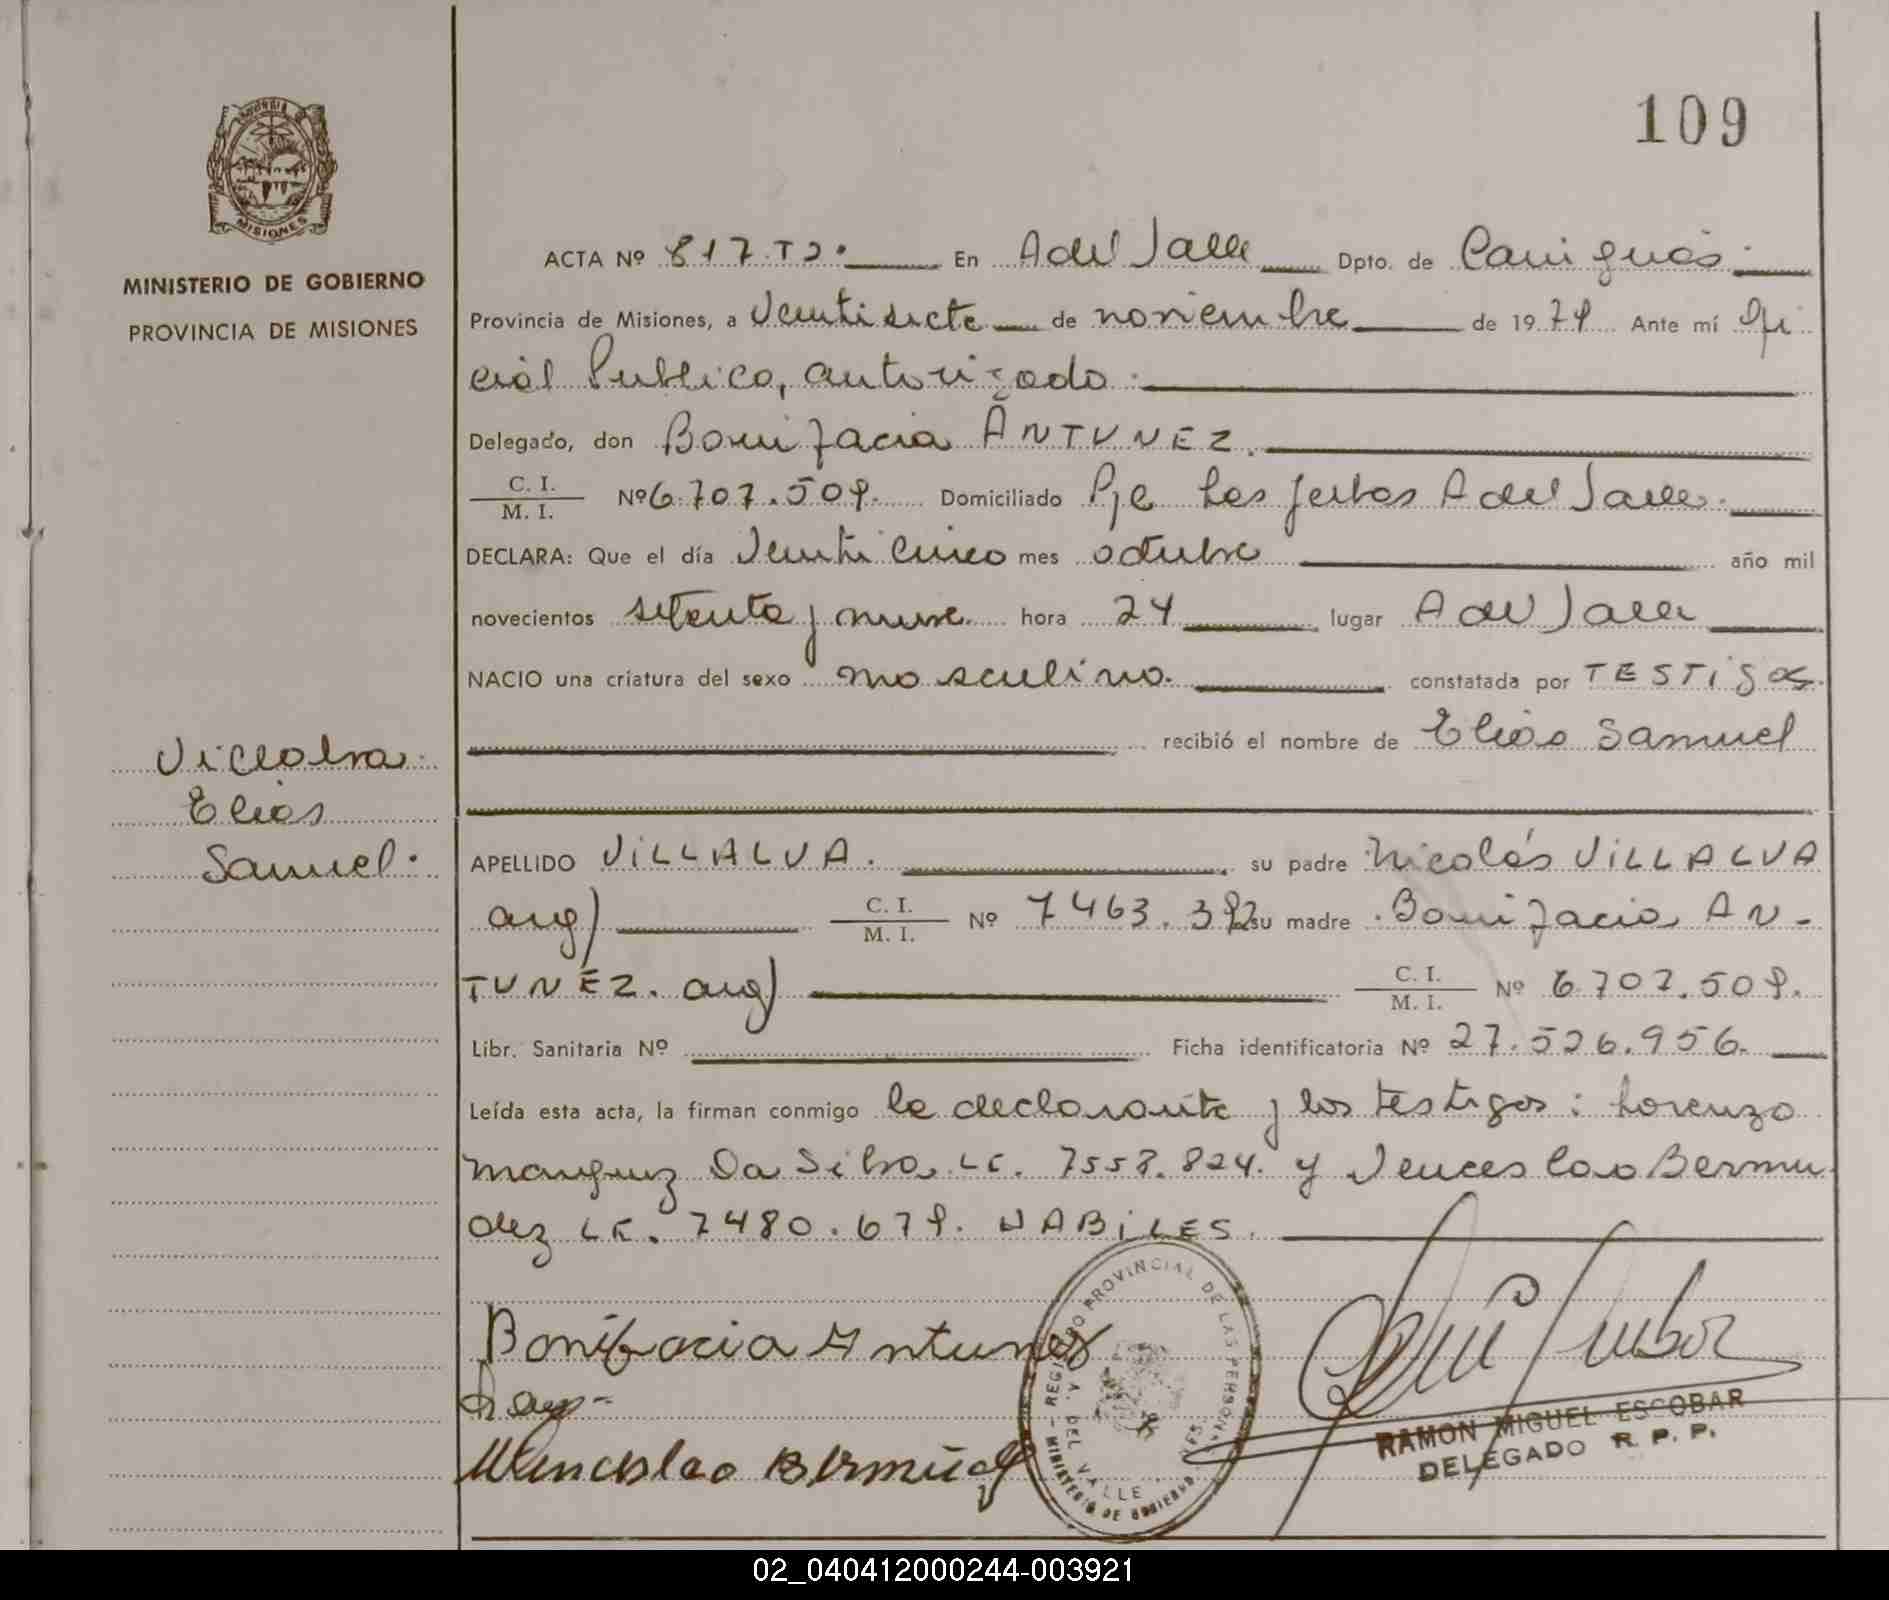 109
MISIONES
MINISTERIO DE GOBIERNO
PROVINCIA DE MISIONES
ACTA Nº 817.T2. En A del Valle Dpto. de Cainguás.
Provincia de Misiones, a Veintisiete de noviembre de 1979 Ante mí Ofi
cial Publico, autorizado.
Delegado, don Bonifacia ANTUNEZ.
C. I.
M. I. Nº 6.707.509. Domiciliado Pje Los Yerbas A del Valle.
DECLARA: Que el día Veinti Cinco mes octubre año mil
novecientos setenta y nueve hora 24 lugar A del Valle
NACIO una criatura del sexo masculino. constatada por TESTIGOS
recibió el nombre de Elias Samuel
Villalva.
Elias
Samuel.
APELLIDO VILLALVA. su padre Nicolás VILLALVA
arg) C. I. / M. I. Nº 7463.392 su madre Bonifacia AN-
TUNEZ. arg) C. I. / M. I. Nº 6.707.509.
Libr. Sanitaria Nº Ficha identificatoria Nº 27.526.956.
Leída esta acta, la firman conmigo la declarante y los testigos: Lorenzo
Da Silva LE. 7558.824. y Venceslao Bermu
dez LE. 7480.679. HABILES.
Bonifacia Antunez
Wenceslao Bermúdez
REGISTRO PROVINCIAL DE LAS PERSONAS
A. DEL VALLE
MINISTERIO DE GOBIERNO
RAMON MIGUEL ESCOBAR
DELEGADO R. P. P.
02_040412000244-003921